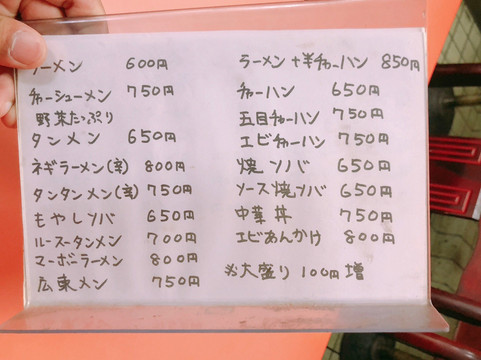 ラーメン 600円
チャーシューメン 750円
野菜たっぷり
タンメン 650円
ネギラーメン(辛) 800円
タンタンメン(辛) 750円
もやしソバ 650円
ルースータンメン 700円
マーボーラーメン 800円
広東メン 750円
ラーメン+半チャーハン 850円
チャーハン 650円
五目チャーハン 750円
エビチャーハン 750円
焼ソバ 650円
ソース焼ソバ 650円
中華丼 750円
エビあんかけ 800円
※大盛り100円増